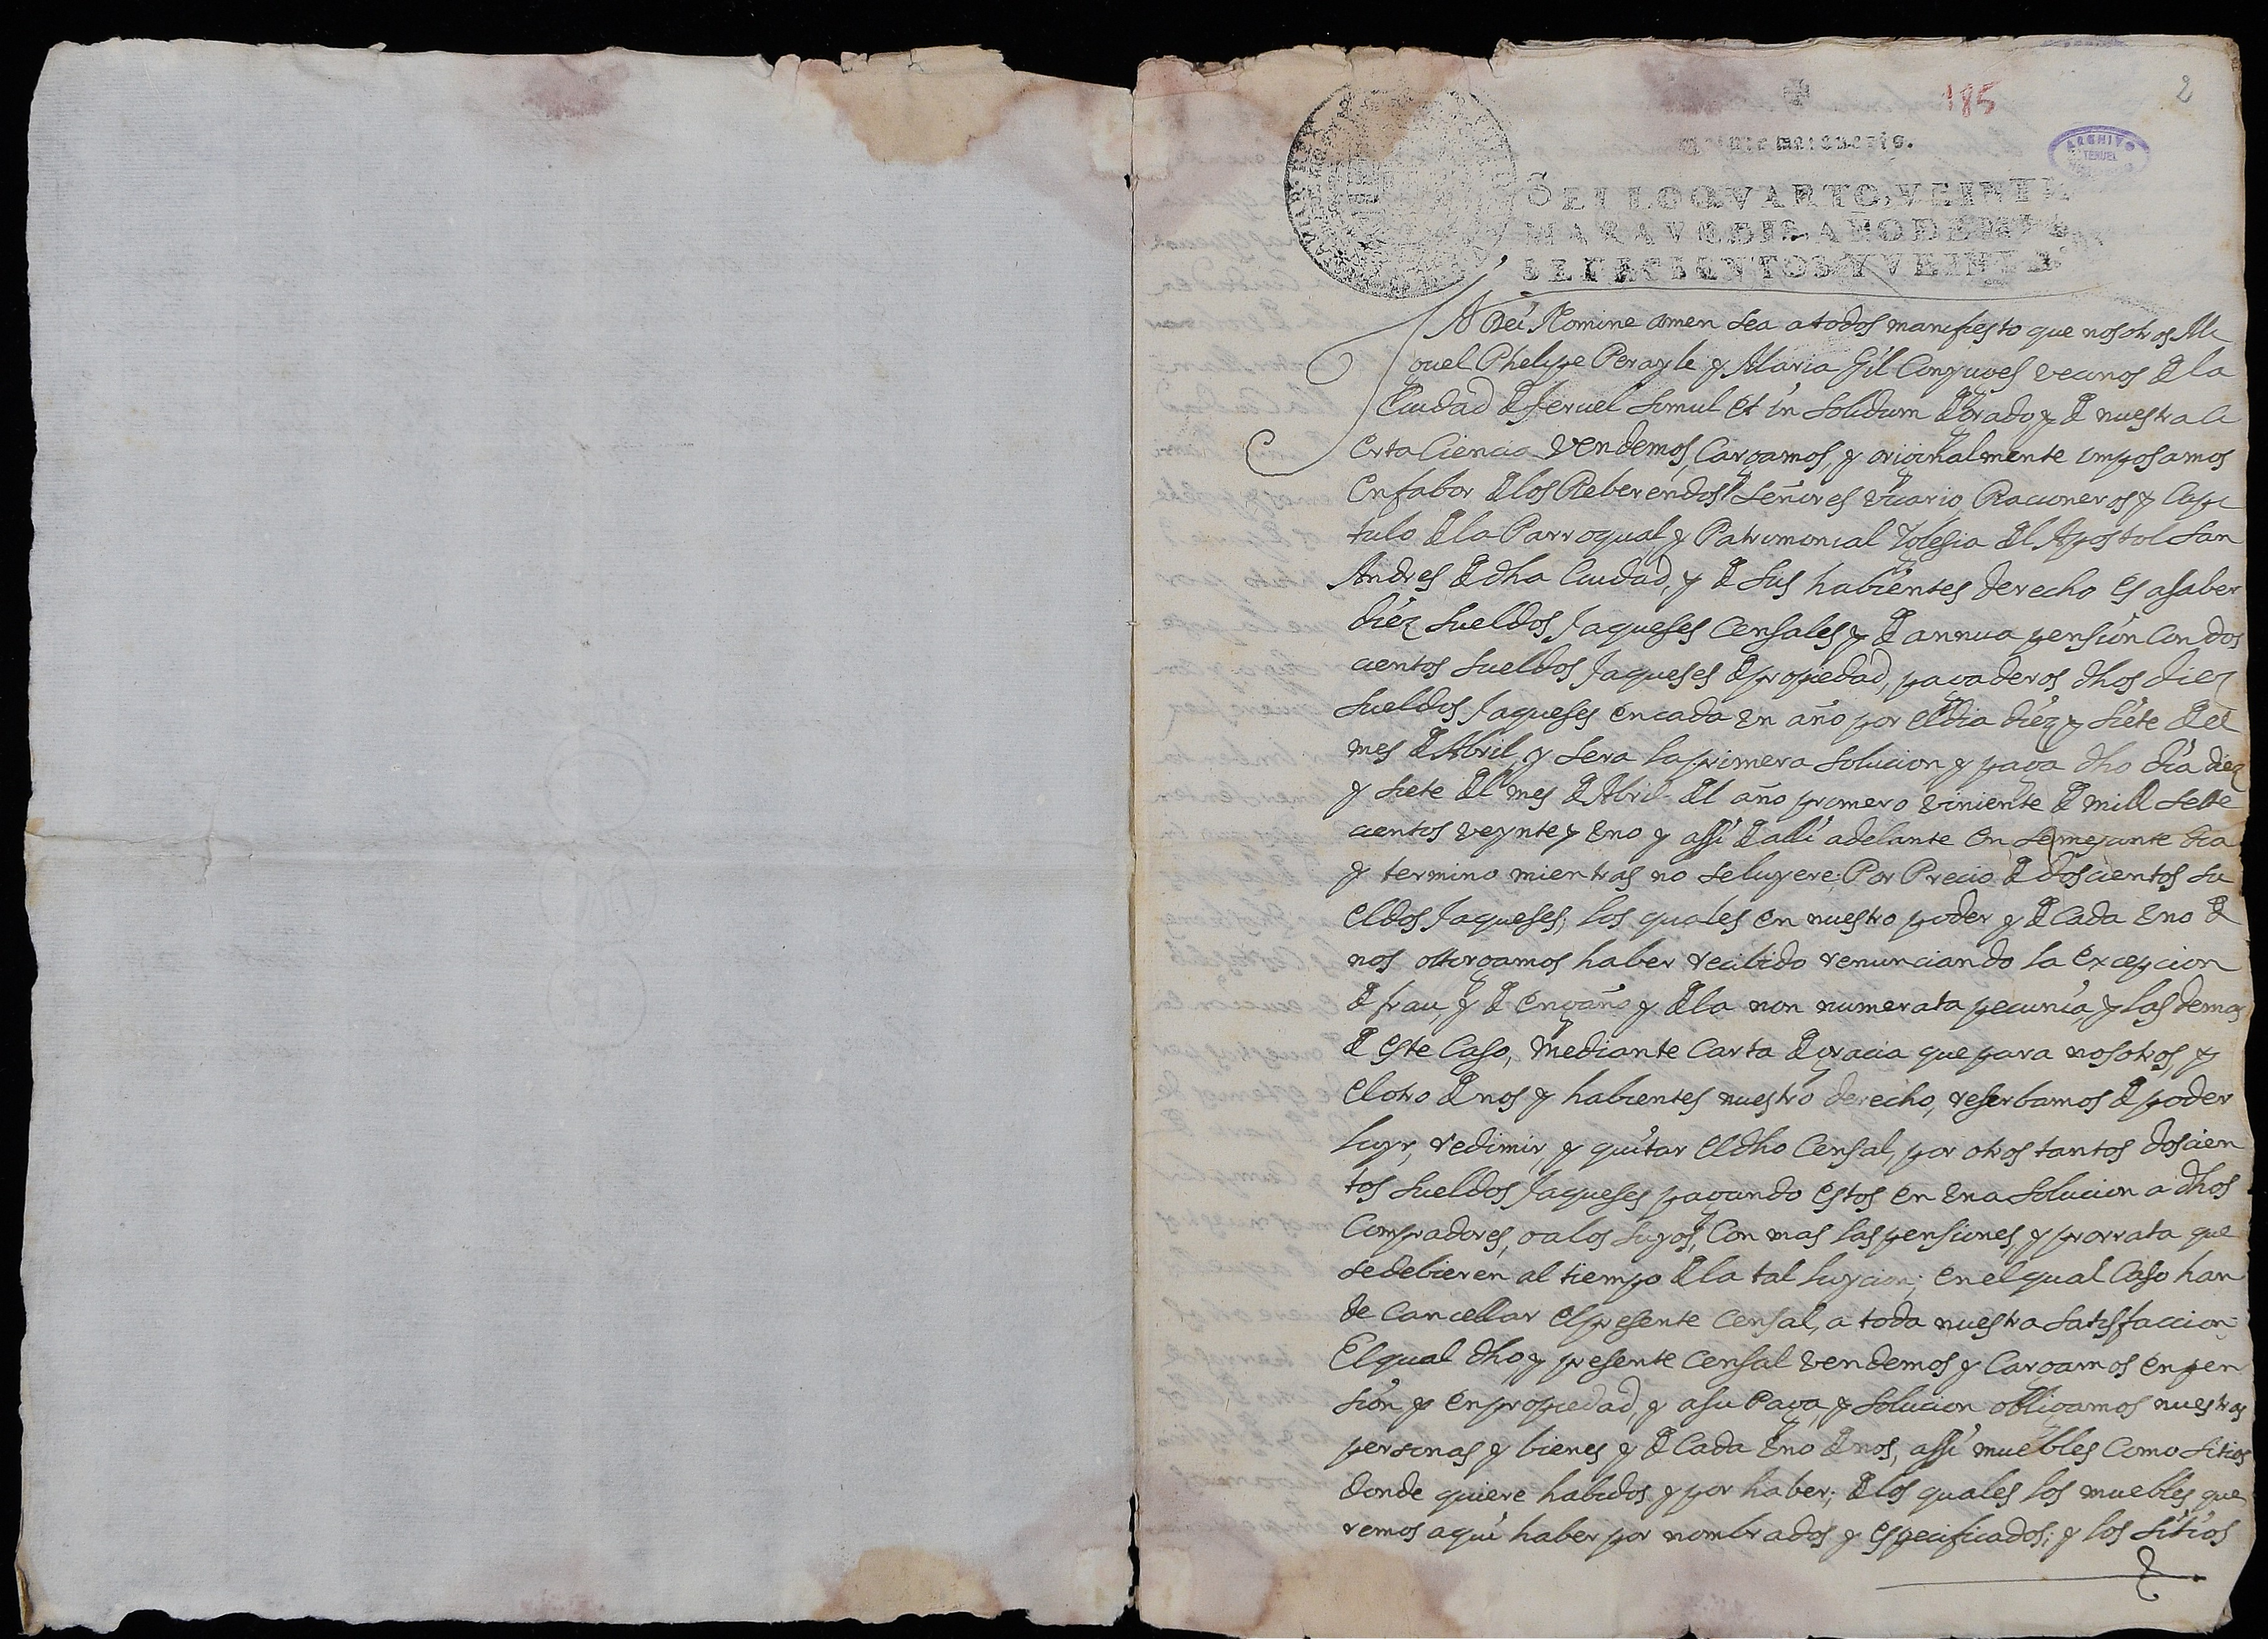 185
2
Veinte maravedis.
ARCHIVO
TERUEL
SELLO QVARTO, VEINTE
MARAVEDIS, AÑO DE MIL
SETECIENTOS Y VEINTE.
In Dei Nomine amen sea a todos manifiesto que nosotros Mi
guel Phelipe Perayle y Maria Gil Conyuges vecinos de la
Ciudad de Teruel simul et in solidum de grado y de nuestra ci
erta Ciencia vendemos, Cargamos, y originalmente imposamos
en fabor de los Reberendos Señores Vicario, Racioneros y Capi
tulo de la Parroquial, y Patrimonial Yglesia del Apostol San
Andres de dha Ciudad, y de sus habientes derecho es asaber
diez sueldos Jaqueses Censales y de annua pension con dos
cientos sueldos Jaqueses de propiedad, pagaderos dhos diez
sueldos Jaqueses en cada un año por el dia diez y siete del
mes de Abril, y sera la primera solucion y paga dho dia diez
y siete del mes de Abril del año primero viniente de mill sete
cientos veynte y uno y assi de alli adelante en semejante dia
y termino mientras no se luyere; Por Precio de doscientos su
eldos Jaqueses; los quales en nuestro poder y de cada uno de
nos otorgamos haber recibido renunciando la excepcion
de frau, y de engaño y de la non numerata pecunia, y las demas
de este caso, mediante Carta de gracia que para nosotros, y
el otro de nos y habientes nuestro derecho, reserbamos de poder
luyr, redimir, y quitar el dho Censal, por otros tantos doscien
tos sueldos Jaqueses pagando estos en una solucion a dhos
Compradores, o a los suyos, Con mas las pensiones, y prorrata que
se debieren al tiempo de la tal luycion; en el qual caso han
de cancellar el presente Censal, a toda nuestra satisfaccion
El qual dho y presente Censal vendemos y Cargamos en pen
sion y en propiedad, y a su Paga, y solucion obligamos nuestras
personas y bienes y de Cada uno de nos, assi muebles como sitios
donde quiere habidos y por haber; de los quales los muebles que
remos aqui haber por nombrados y especificados; y los sitios